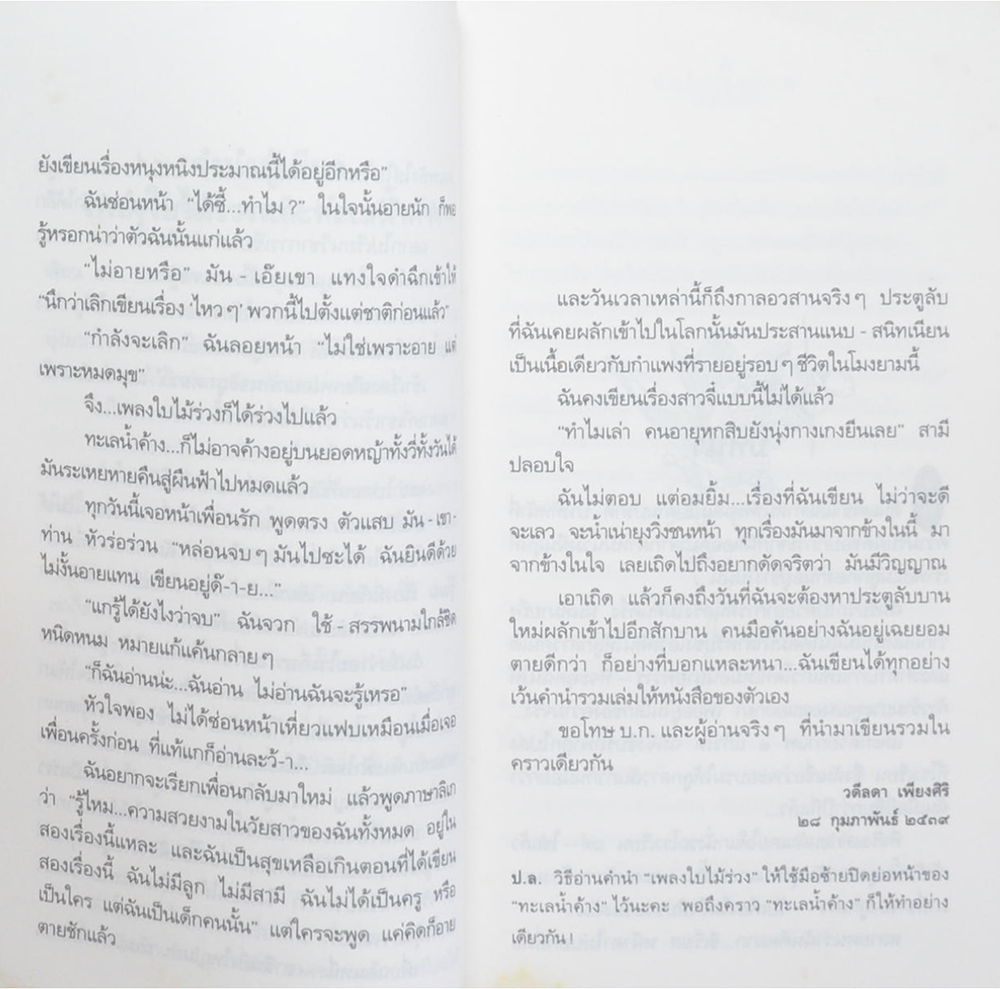 ยังเขียนเรื่องหนุงหนิงประมาณนี้ได้อยู่อีกหรือ"
ฉันซ่อนหน้า "ได้ซี้...ทำไม ?" ในใจนั้นอายนัก ก็พอ
รู้หรอกน่าว่าตัวฉันนั้นแก่แล้ว
"ไม่อายหรือ" มัน - เอ๊ยเขา แทงใจดำฉึกเข้าให้
"นึกว่าเลิกเขียนเรื่อง ไหว ๆ พวกนี้ไปตั้งแต่ชาติก่อนแล้ว"
"กำลังจะเลิก" ฉันลอยหน้า "ไม่ใช่เพราะอาย แต่
เพราะหมดมุข"
จึง...เพลงใบไม้ร่วงก็ได้ร่วงไปแล้ว
ทะเลน้ำค้าง...ก็ไม่อาจค้างอยู่บนยอดหญ้าทั้งวี่ทั้งวันได้
มันระเหยหายคืนสู่ผืนฟ้าไปหมดแล้ว
ทุกวันนี้เจอหน้าเพื่อนรัก พูดตรง ตัวแสบ มัน - เขา -
ท่าน หัวร่อร่วน "หล่อนจบ ๆ มันไปซะได้ ฉันยินดีด้วย
ไม่งั้นอายแทน เขียนอยู่ด๊ - า - ย..."
"แกรู้ได้ยังไงว่าจบ" ฉันจวก ใช้ - สรรพนามใกล้ชิด
หนิดหนม หมายแก้แค้นกลาย ๆ
"ก็ฉันอ่านน่ะ...ฉันอ่าน ไม่อ่านฉันจะรู้เหรอ"
หัวใจพอง ไม่ได้ซ่อนหน้าเหี่ยวแฟบเหมือนเมื่อเจอ
เพื่อนครั้งก่อน ที่แท้แกก็อ่านละว้า...
ฉันอยากจะเรียกเพื่อนกลับมาใหม่ แล้วพูดภาษาลิเก
ว่า "รู้ไหม...ความสวยงามในวัยสาวของฉันทั้งหมด อยู่ใน
สองเรื่องนี้แหละ และฉันเป็นสุขเหลือเกินตอนที่ได้เขียน
สองเรื่องนี้ ฉันไม่มีลูก ไม่มีสามี ฉันไม่ได้เป็นครู หรือ
เป็นใคร แต่ฉันเป็นเด็กคนนั้น" แต่ใครจะพูด แค่คิดก็อาย
ตายชักแล้ว
และวันเวลาเหล่านี้ก็ถึงกาลอวสานจริง ๆ ประตูลับ
ที่ฉันเคยผลักเข้าไปในโลกนั้นมันประสานแนบ - สนิทเนียน
เป็นเนื้อเดียวกับกำแพงที่รายอยู่รอบ ๆ ชีวิตในโมงยามนี้
ฉันคงเขียนเรื่องสาวจี๋แบบนี้ไม่ได้แล้ว
"ทำไมเล่า คนอายุหกสิบยังนุ่งกางเกงยีนเลย" สามี
ปลอบใจ
ฉันไม่ตอบ แต่อมยิ้ม...เรื่องที่ฉันเขียน ไม่ว่าจะดี
จะเลว จะน้ำเน่ายุงวิ่งชนหน้า ทุกเรื่องมันมาจากข้างในนี้ มา
จากข้างในใจ เลยเถิดไปถึงอยากดัดจริตว่า มันมีวิญญาณ
เอาเถิด แล้วก็คงถึงวันที่ฉันจะต้องหาประตูลับบาน
ใหม่ผลักเข้าไปอีกสักบาน คนมือคันอย่างฉันอยู่เฉยยอม
ตายดีกว่า ก็อย่างที่บอกแหละหนา...ฉันเขียนได้ทุกอย่าง
เว้นคำนำรวมเล่มให้หนังสือของตัวเอง
ขอโทษ บ.ก. และผู้อ่านจริง ๆ ที่นำมาเขียนรวมใน
คราวเดียวกัน
วดีลดา เพียงศิริ
๒๘ กุมภาพันธ์ ๒๕๓๙
ป.ล. วิธีอ่านคำนำ "เพลงใบไม้ร่วง" ให้ใช้มือซ้ายปิดย่อหน้าของ
"ทะเลน้ำค้าง" ไว้นะคะ พอถึงคราว "ทะเลน้ำค้าง" ก็ให้ทำอย่าง
เดียวกัน !